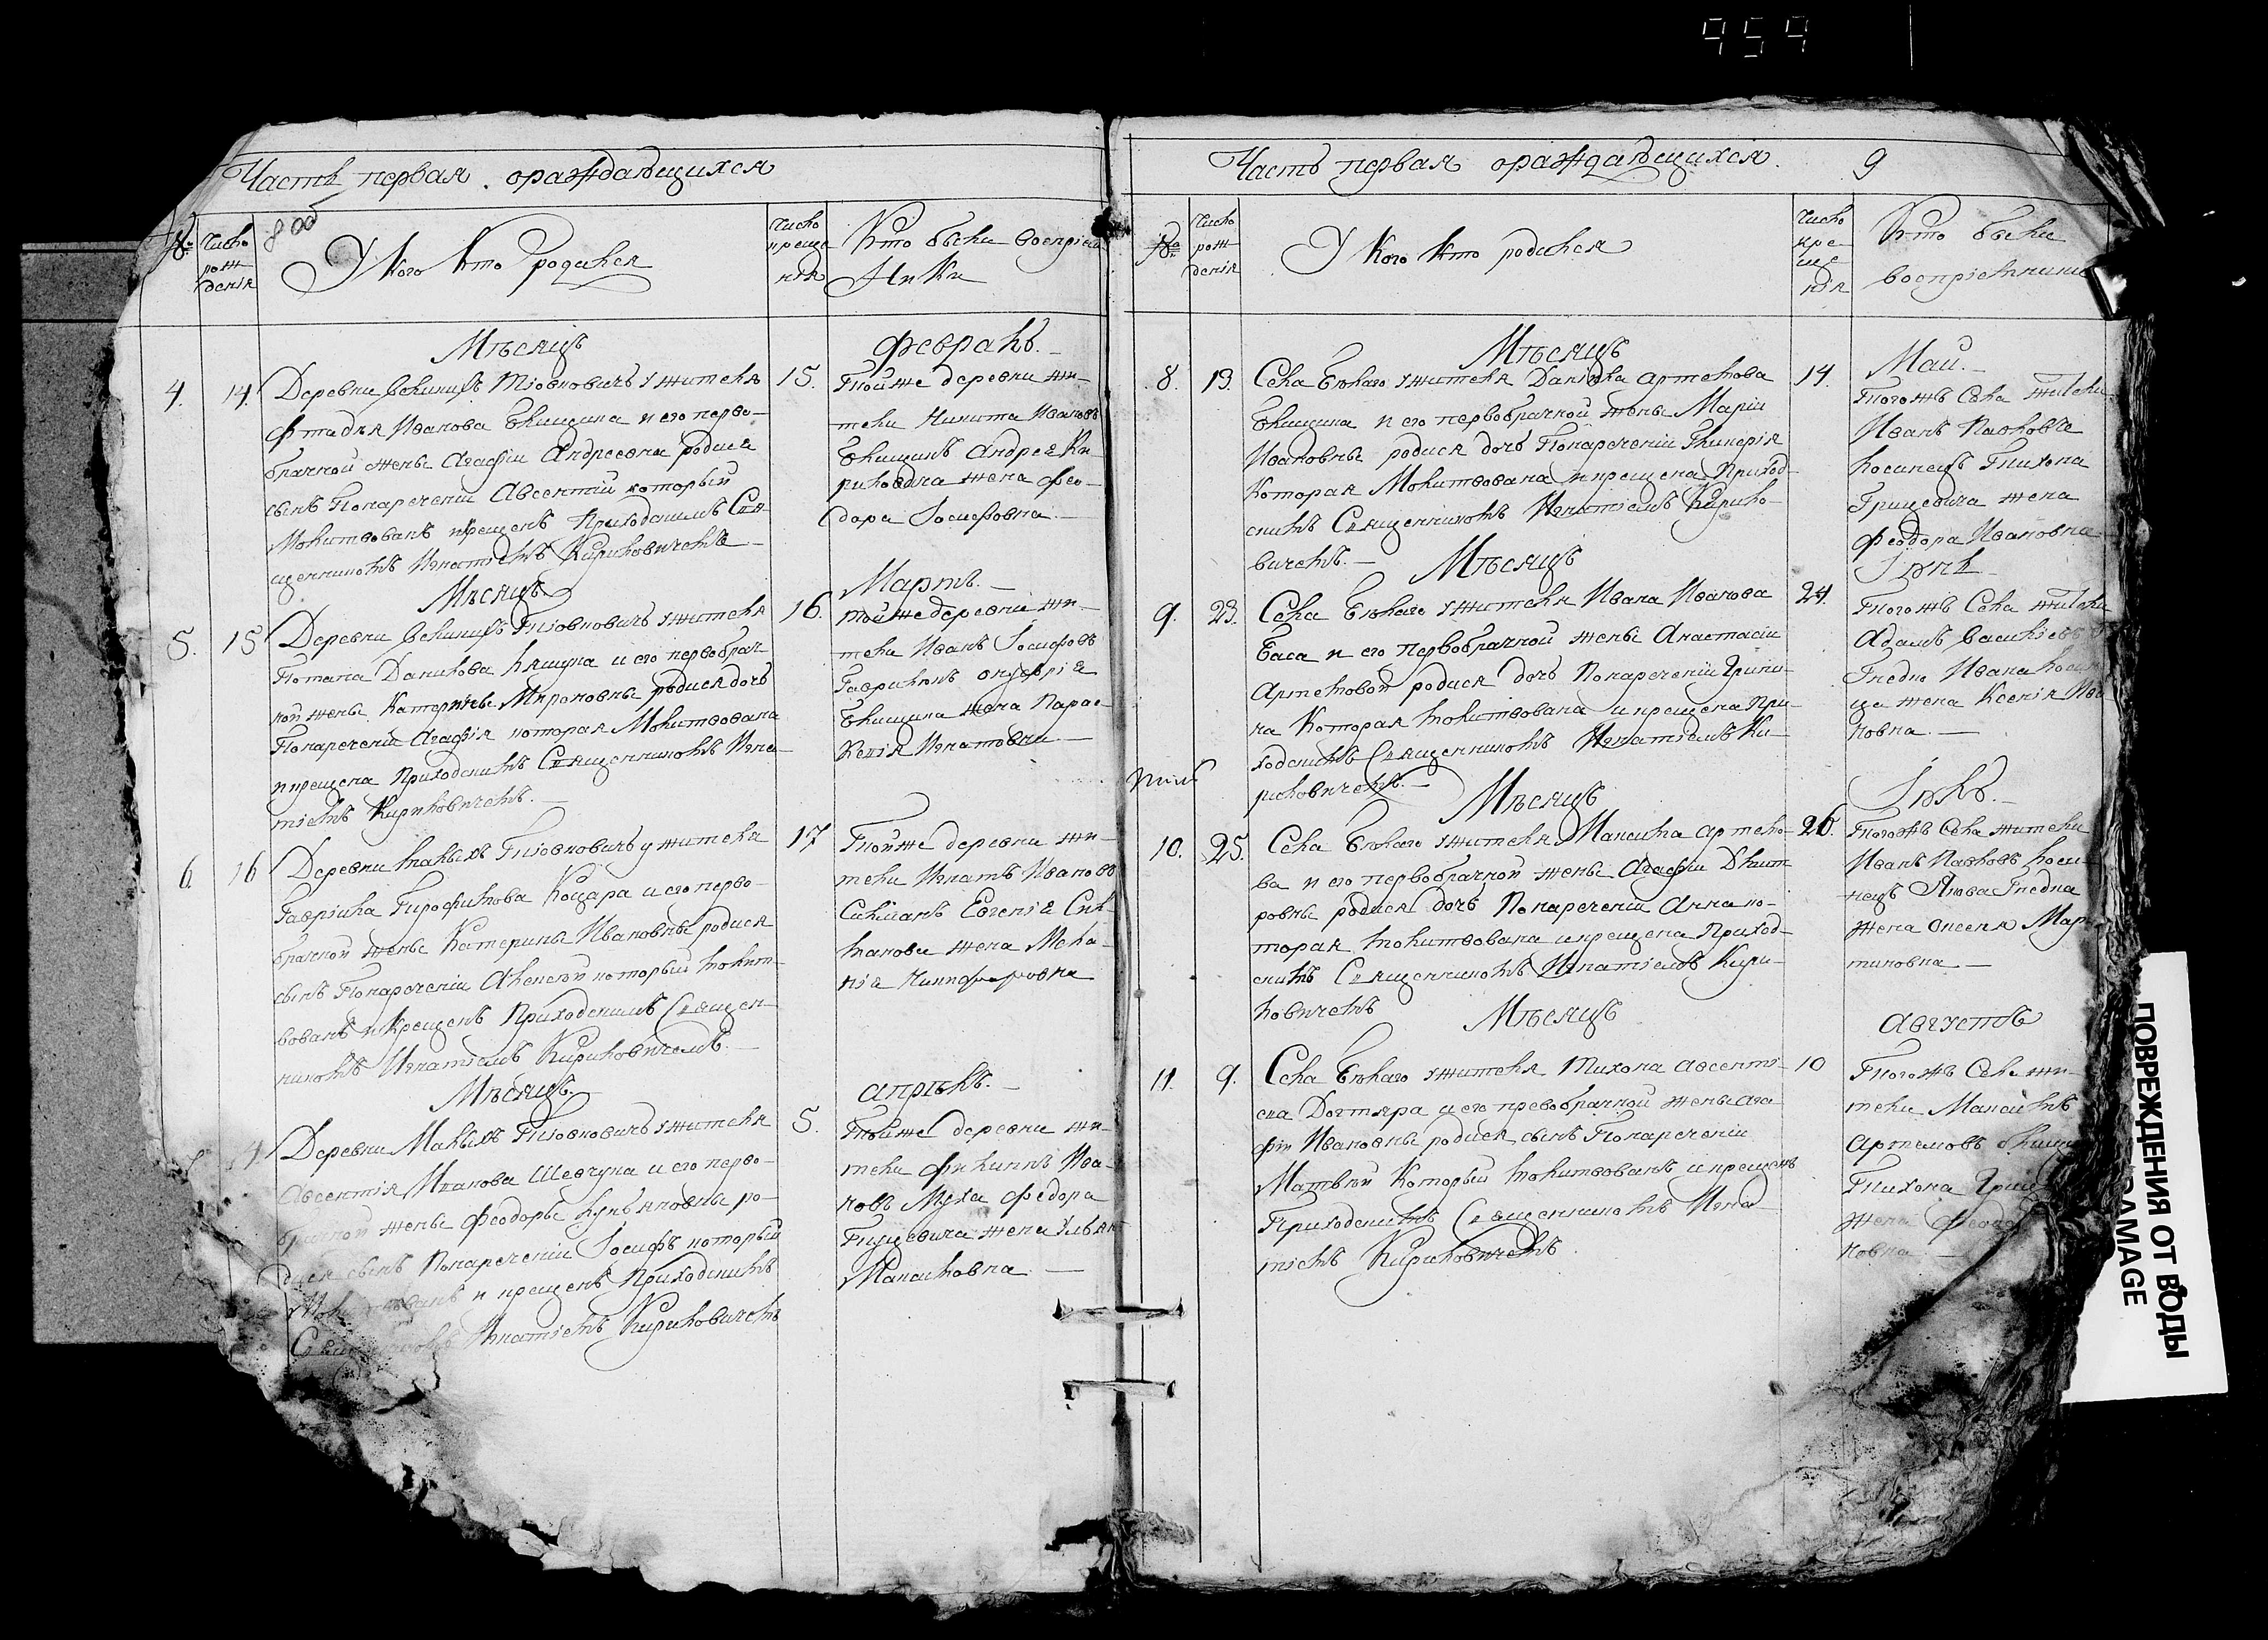 959
Часть первая ораждающихся
8 об
№
Число рождения
У кого кто родился
Число крещения
Кто были воспріемники
Мѣсяцъ
Февраль.
4. 14.
Деревни Великихъ Тіовковичъ у жителя
Ивanова Екимца и его перво-
брачной жены Агафіи Андреевны родися
сынъ Понаречении Авсентий который
Молитвованъ и крещенъ Приходскимъ Свя-
щенникомъ Игнатіемъ Кириловичемъ
15.
Тойже деревни жи-
тели Никита Ивановъ
Андрея Ки-
риловича жена Фео-
дора Іосифовна
Мѣсяцъ
Мартъ.
5. 15
Деревни Великихъ Тіовковичъ у жителя
Потапа Данилова и его первобрач-
ной жены Катерины Мироновны родися дочь
Понаречении Агафія которая Молитвована
и крещена Приходскимъ Священникомъ Игна-
тіемъ Кириловичемъ.
16.
тойже деревни жи-
тели Иванъ Іосифовъ
Гавриликъ Онуфрія
жена Парас-
Игнатовна
6. 16
Деревни Малыхъ Тіовковичъ у жителя
Гаврiила Коцара и его перво-
брачной жены Катерины Ивановны родися
сынъ Понаречении Алексѣй который молит-
вованъ и Крещенъ Приходскимъ Священ-
никомъ Игнатіемъ Кириловичемъ.
17
Тойже деревни жи-
тели Игнатъ Ивановъ
Евгенія
жена Мела-
нія Никифоровна
Мѣсяцъ.
апрѣль.
Деревни Малыхъ Тіовковичъ у жителя
Авсентія Иванова Шевчука и его перво-
брачной жены Феодоры Лукьяновны ро-
дися сынъ Понаречении Іосифъ который
Молитвованъ и крещенъ Приходскимъ
Священникомъ Игнатіемъ Кириловичемъ
5.
Тойже деревни жи-
тели Филиппъ Ива-
новъ Муха Федора
жена Ульяна
Максимовна
Часть первая ораждающихся.
9
№
Число рождения
У Кого кто родился
Число крещения
Кто были воспріемники
Мѣсяцъ
Май.
8. 13.
Села Бѣлаго у жителя Данила Артемова
Екимца и его первобрачной жены Маріи
Ивановны родися дочь Понаречении Гликерія
Которая Молитвована и крещена Приход-
скимъ Священникомъ Игнатіемъ Кирило-
вичемъ.
14.
Тогожъ Села жители
Иванъ Павловъ
Косинецъ Тихона
Грицевича жена
Феодора Ивановна
Мѣсяцъ
Іюнь
9. 23.
Села Бѣлаго у жителя Ивана Иванова
Баса и его первобрачной жены Анастасіи
Артемовой родися дочь Понаречении Ирини-
на Которая молитвована и крещена При-
ходскимъ Священникомъ Игнатіемъ Ки-
риловичемъ.
24.
Тогожъ Села жители
Адамъ Василіевъ
Гнедко Ивана Косин-
ца жена Ксенія Ива-
новна.
Мѣсяцъ
Іюль.
10. 25.
Села Бѣлаго у жителя Максима Артемо-
ва и его первобрачной жены Агафіи Дмит-
ровны родися дочь Понаречении Анна ко-
торая молитвована и крещена Приход-
скимъ Священникомъ Игнатіемъ Кири-
ловичемъ
26.
Тогожъ Села жители
Иванъ Павловъ Коси-
нецъ Якова Гнедка
жена Оксеня Мар-
тиновна
Мѣсяцъ
Августъ
11. 9.
Села Бѣлаго у жителя Тихона Авсенті-
ева Дегтяра и его первобрачной жены Ага-
фіи Ивановны родися сынъ Понаречении
Матвѣй Который молитвованъ и крещенъ
Приходскимъ Священникомъ Игна-
тіемъ Кириловичемъ.
10
Тогожъ Села жи-
тели Максимъ
Артемовъ
Тихона
жена
новна
ПОВРЕЖДЕНИЯ ОТ ВОДЫ
DAMAGE